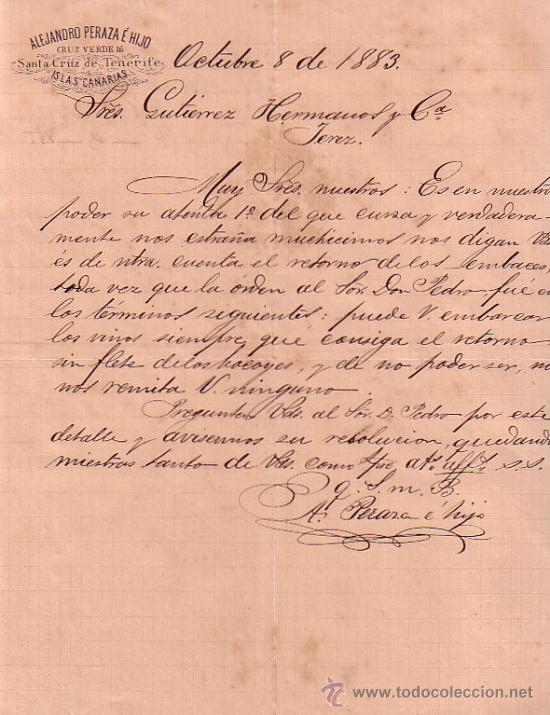 ALEJANDRO PERAZA É HIJO
CRUZ VERDE 16
Santa Cruz de Tenerife
ISLAS CANARIAS
Octubre 8 de 1883.
Sres. Gutiérrez Hermanos y Ca.
Jerez.
Muy Sres. nuestros: Es en nuestro
poder su atenta 1º del que cursa y verdadera-
mente nos estraña muchicimos nos digan Vds
es de ntra. cuenta el retorno de los embaces,
toda vez que la órden al Sor. Don Pedro fué en
los términos seguientes: puede V. embarcar
los vinos siempre que consiga el retorno
sin flete de los bocoyes, y de no poder ser, no
nos remita V. ninguno.
Pregunten Vds. al Sor. D. Pedro por este
detalle y avisennos su resolucion, quedando
mientras tanto de Vds. como spre. ats. affs. s.s.
q. S. m. B.
A. Peraza é hijo
www.todocoleccion.net